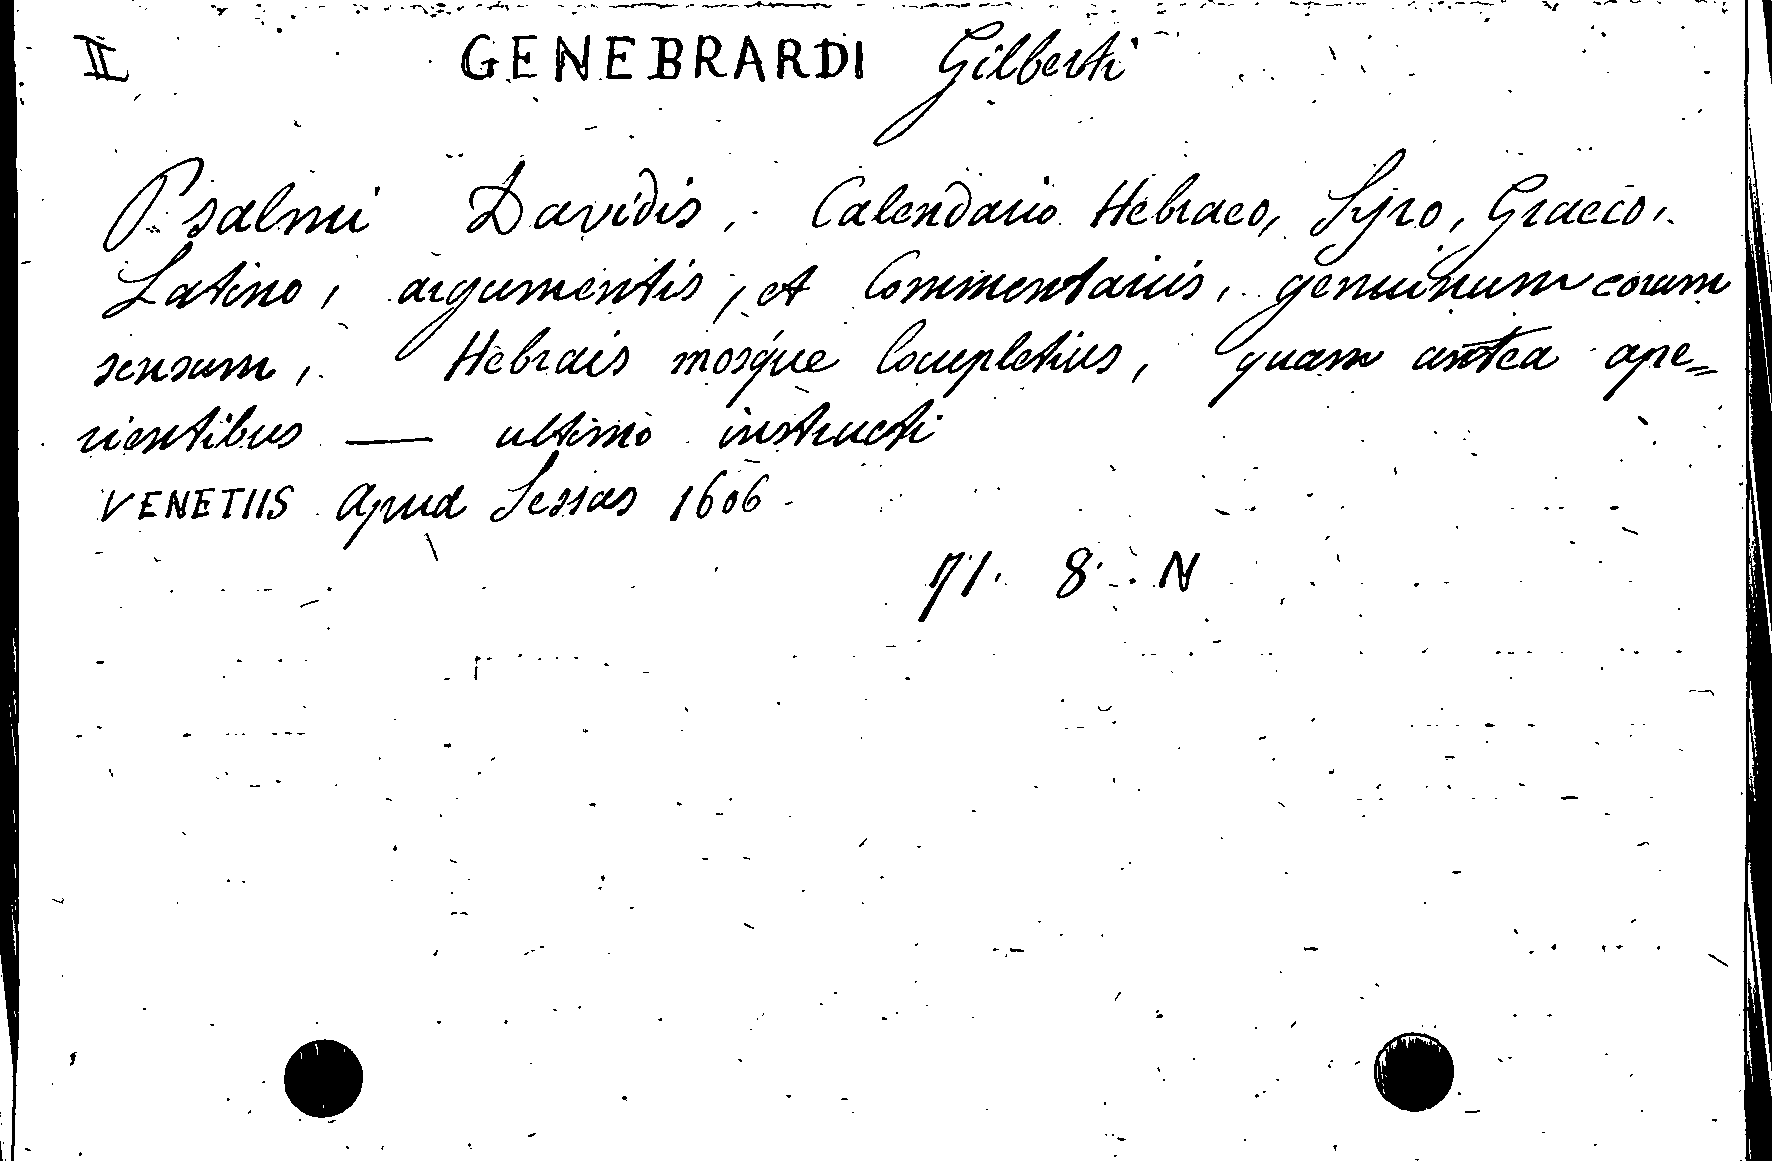 II GENEBRARDI Gilberti
Psalmi Davidis, Calendario Hebraeo, Syro, Graeco,
Latino, argumentis, et Commentariis, genuinum eorum
sensum, Hebrais mosque locupletius, quam antea ape=
rientibus — ultimo instructi
VENETIIS apud Sessas 1606
71. 8. N